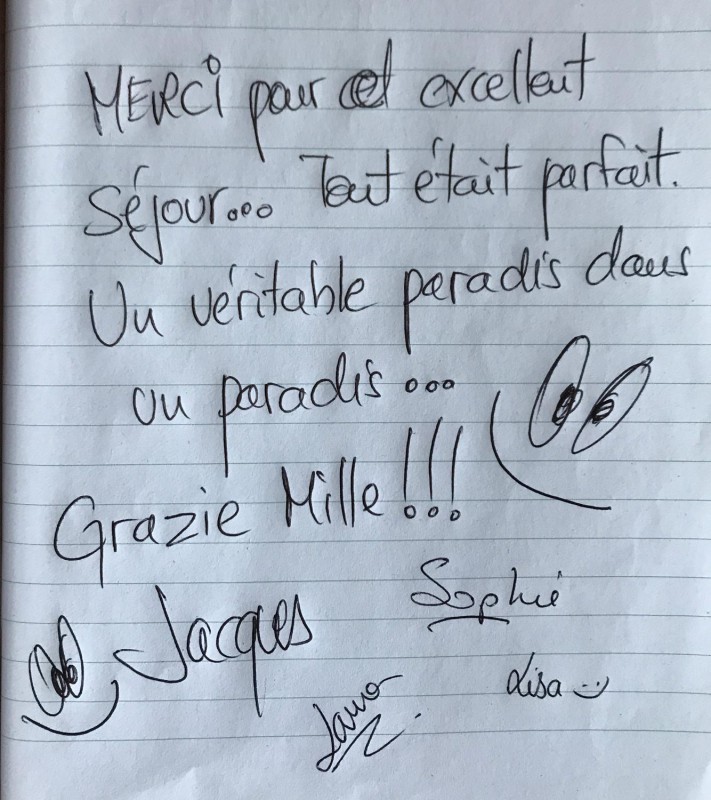 MERCi pour cet excellent
Séjour... Tout était parfait.
Un véritable paradis dans
un paradis...
Grazie Mille!!!
Jacques
Sophie
Lisa